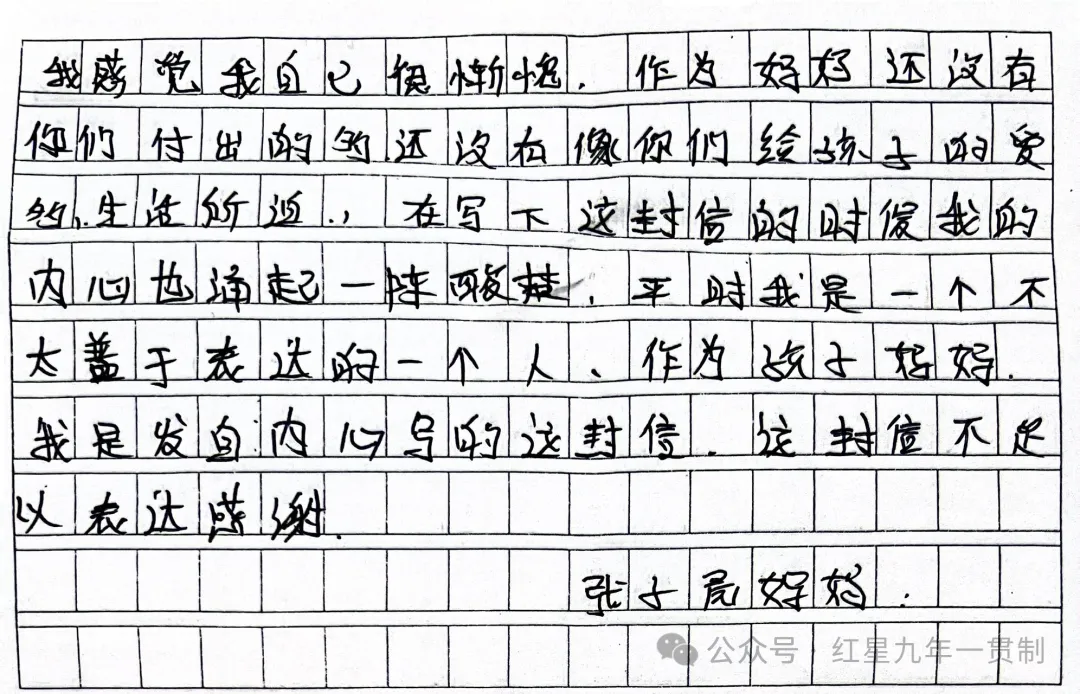 我感觉我自己很惭愧.作为妈妈还没有
你们付出的多.还没有像你们给孩子的爱
多.生活所迫.,在写下这封信的时候我的
内心也涌起一阵酸楚.平时我是一个不
太善于表达的一个人、作为孩子妈妈.
我是发自内心写的这封信.这封信不足
以表达感谢.
张子 妈妈.
公众号·红星九年一贯制